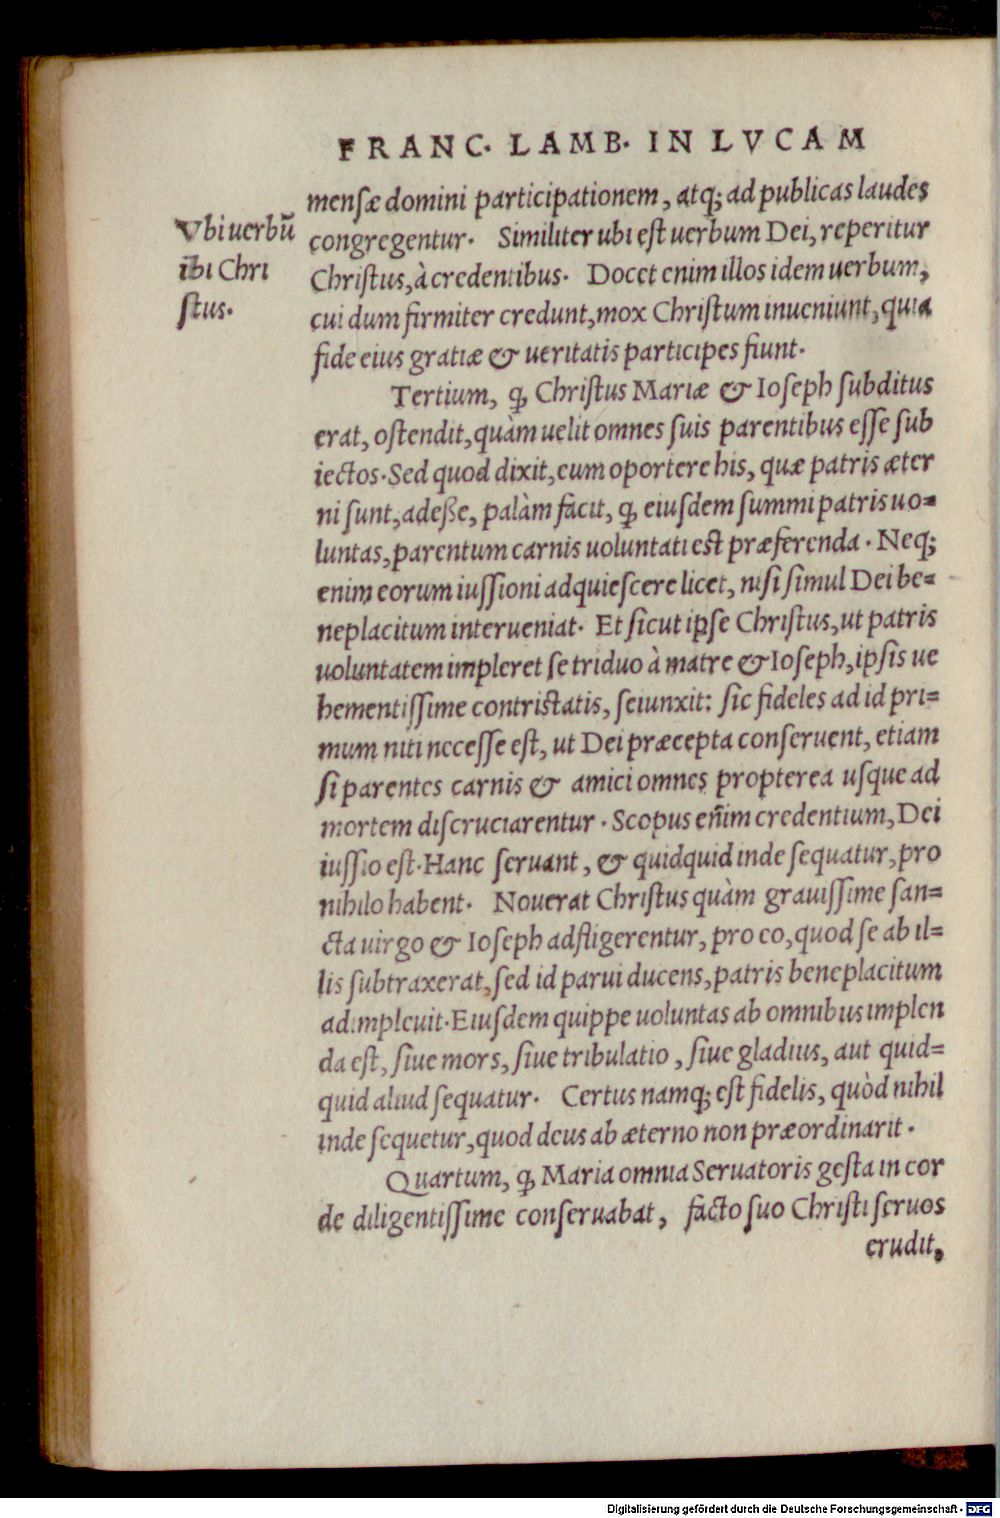 FRANC. LAMB. IN LVCAM
mensæ domini participationem, atq; ad publicas laudes
Vbi uerbū
ibi Chri
stus.
congregentur. Similiter ubi est uerbum Dei, reperitur
Christus, à credentibus. Docet enim illos idem uerbum,
cui dum firmiter credunt, mox Christum inueniunt, quia
fide eius gratiæ & ueritatis participes fiunt.
Tertium, ꝙ Christus Mariæ & Ioseph subditus
erat, ostendit, quàm uelit omnes suis parentibus esse sub
iectos. Sed quod dixit, eum oportere his, quæ patris æter
ni sunt, adeße, palàm facit, ꝙ eiusdem summi patris uo=
luntas, parentum carnis uoluntati est præferenda. Neq;
enim eorum iussioni adquiescere licet, nisi simul Dei be=
neplacitum interueniat. Et sicut ipse Christus, ut patris
uoluntatem impleret se triduo à matre & Ioseph, ipsis ue
hementissime contristatis, seiunxit: sic fideles ad id pri=
mum niti necesse est, ut Dei præcepta conseruent, etiam
si parentes carnis & amici omnes propterea usque ad
mortem discruciarentur. Scopus eñim credentium, Dei
iussio est. Hanc seruant, & quidquid inde sequatur, pro
nihilo habent. Nouerat Christus quàm grauissime san=
cta uirgo & Ioseph adfligerentur, pro eo, quod se ab il=
lis subtraxerat, sed id parui ducens, patris beneplacitum
adimpleuit. Eiusdem quippe uoluntas ab omnibus implen
da est, siue mors, siue tribulatio, siue gladius, aut quid=
quid aliud sequatur. Certus namq; est fidelis, quòd nihil
inde sequetur, quod deus ab æterno non præordinarit.
Quartum, ꝙ Maria omnia Seruatoris gesta in cor
de diligentissime conseruabat, facto suo Christi seruos
erudit,
Digitalisierung gefördert durch die Deutsche Forschungsgemeinschaft - DFG